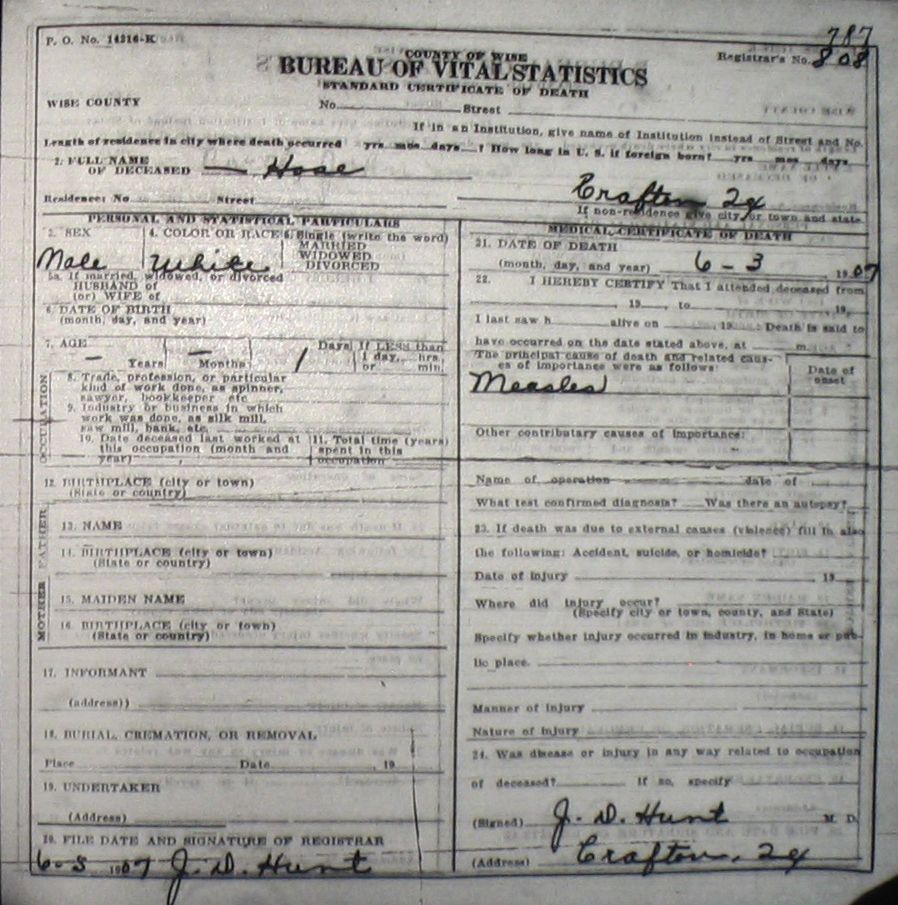 P. O. No. 14216-K
787
COUNTY OF WISE
Registrar's No. 808
BUREAU OF VITAL STATISTICS
STANDARD CERTIFICATE OF DEATH
WISE COUNTY
No. Street
If in an Institution, give name of Institution instead of Street and No.
Length of residence in city where death occurred yrs mos days ? How long in U. S. if foreign born? yrs mos days
2. FULL NAME
OF DECEASED — Hose
Residence: No Street
Crafton Tex
If non-residence give city or town and state
PERSONAL AND STATISTICAL PARTICULARS
3. SEX
Male
4. COLOR OR RACE
White
5. Single (write the word)
MARRIED
WIDOWED
DIVORCED
5a. If married, widowed, or divorced
HUSBAND of
(or) WIFE of
6. DATE OF BIRTH
(month, day, and year)
7. AGE
— Years — Months 1 Days
If LESS than
1 day, hrs.
or min.
OCCUPATION
8. Trade, profession, or particular
kind of work done, as spinner,
sawyer, bookkeeper etc
9. Industry or business in which
work was done, as silk mill,
saw mill, bank, etc.
10. Date deceased last worked at
this occupation (month and
year)
11. Total time (years)
spent in this
occupation
12. BIRTHPLACE (city or town)
(State or country)
FATHER
13. NAME
14. BIRTHPLACE (city or town)
(State or country)
MOTHER
15. MAIDEN NAME
16. BIRTHPLACE (city or town)
(State or country)
17. INFORMANT
(address))
18. BURIAL, CREMATION, OR REMOVAL
Place Date , 19
19. UNDERTAKER
(Address)
20. FILE DATE AND SIGNATURE OF REGISTRAR
6-3 1907 J. D. Hunt
MEDICAL CERTIFICATE OF DEATH
21. DATE OF DEATH
(month, day, and year) 6-3 1907
22. I HEREBY CERTIFY That I attended deceased from
19 , to 19 ,
I last saw h alive on 19 Death is said to
have occurred on the date stated above, at m.
The principal cause of death and related caus-
es of importance were as follows:
Date of
onset
Measles
Other contributary causes of importance:
Name of operation date of
What test confirmed diagnosis? Was there an autopsy?
23. If death was due to external causes (violence) fill in also
the following: Accident, suicide, or homicide?
Date of injury 19
Where did injury occur?
(Specify city or town, county, and State)
Specify whether injury occurred in industry, in home or pub-
lic place.
Manner of injury
Nature of injury
24. Was disease or injury in any way related to occupation
of deceased? If so, specify
(Signed) J. D. Hunt M. D.
(Address) Crafton, Tex